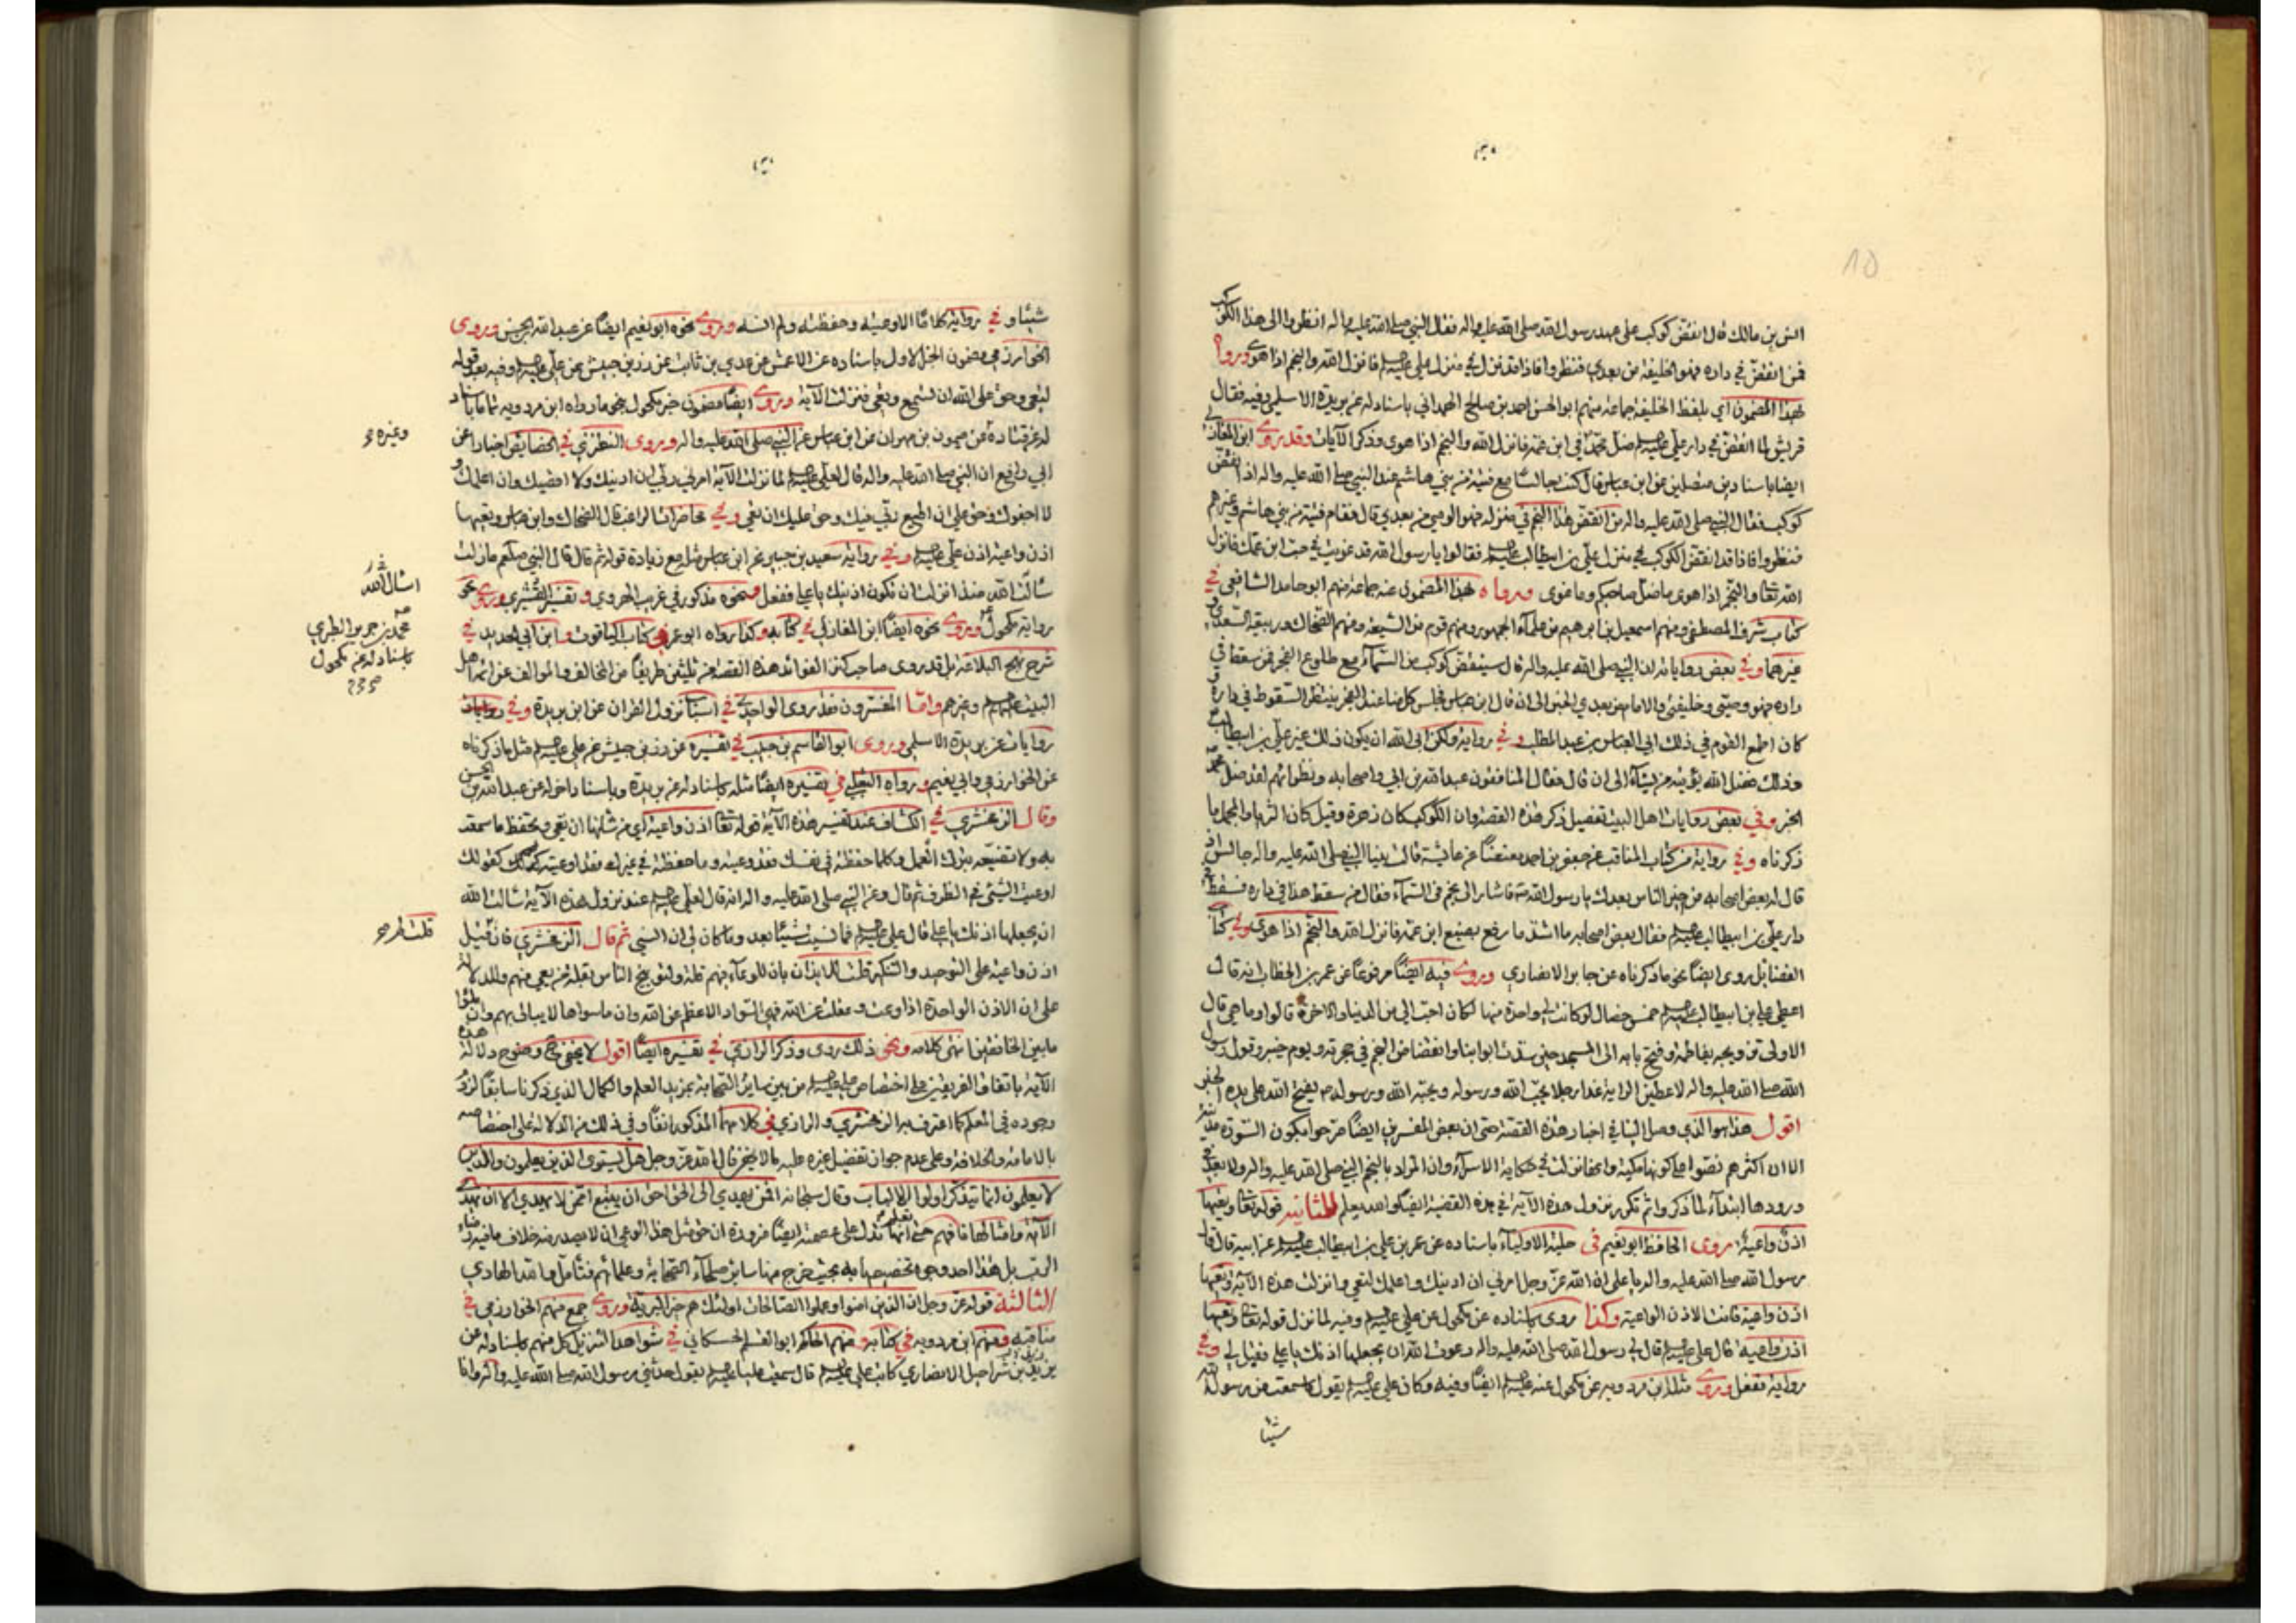 انس بن مالك قال انقض كوكب على عهد رسول الله صلى الله عليه واله فقال النبي صلى الله عليه واله انظروا الى هذا الكوكب
فمن انقض في داره فهو الخليفة من بعدي فنظروا فاذا قد نزل في منزل علي عليه السلم فانزل الله والنجم اذا هوى وروا
بهذا المضمون اي بلفظ الخليفة جماعة منهم ابو الحسن احمد بن صالح الهمداني باسناد له عن بريدة الاسلمي وفيه فقال
قريش لما انقض في دار علي عليه السلم ضل محمد في ابن عمه فانزل الله والنجم اذا هوى وذكر الآيات وقد روى ابن المغازلي
ايضا باسنادين متصلين عن ابن عباس قال كنت جالسا مع فتية من بني هاشم عند النبي صلى الله عليه واله اذ انقض
كوكب فقال النبي صلى الله عليه واله من انقض هذا النجم في منزله فهو الوصي من بعدي قال فقام فتية من بني هاشم وغيرهم
فنظروا فاذا قد انقض الكوكب في منزل علي بن ابيطالب عليه السلم فقالوا يا رسول الله قد غويت في حب ابن عمك فانزل
الله تعا والنجم اذا هوى ما ضل صاحبكم وما غوى ورواه بهذا المضمون عنه جماعة منهم ابو حامد الشافعي في
كتاب شرف المصطفى ومنهم اسمعيل بن ابرهيم من علماء الجمهور ومنهم قوم من الشيعة ومنهم الضحاك وربيعة السعدي و
غيرهما وفي بعض رواياته ان النبي صلى الله عليه واله قال سينقض كوكب من السماء مع طلوع الفجر فمن سقط في
داره فهو وصيي وخليفتي والامام من بعدي الخبر الى ان قال ابن عباس فجلس كل منا عند الفجر ينتظر السقوط في داره و
كان اطمع القوم في ذلك ابي العباس بن عبد المطلب وفي رواية ولكن ابى الله ان يكون ذلك غير علي بن ابيطالب
وذلك فضل الله يؤتيه من يشاء الى ان قال فقال المنافقون عبد الله بن ابي واصحابه ونظرائهم لقد ضل محمد
الخبر وفي بعض روايات اهل البيت تفصيل ذكر هذه القصة وان الكوكب كان زهرة وقيل كان الثريا والمجمل ما
ذكرناه وفي رواية من كتاب المناقب عن جعفر بن احمد معنعنا عن عائشة قالت بينا النبي صلى الله عليه واله جالس اذ
قال له بعض اصحابه من خير الناس بعدك يا رسول الله فاشار الى نجم في السماء فقال من سقط هذا في داره فسقط في
دار علي بن ابيطالب عليه السلم فقال بعض اصحابه ما اشد ما رفع بضبع ابن عمه فانزل الله والنجم اذا هوى وفي كتاب
الفضايل روى ايضا نحو ما ذكرناه عن جابر الانصاري وروى فيه ايضا مرفوعا عن عمر بن الخطاب انه قال
اعطي علي بن ابيطالب عليه السلم خمس خصال لو كانت لي واحدة منها لكان احب الي من الدنيا والاخرة قالوا وما هي قال
الاولى تزويجه بفاطمة وفتح بابه الى المسجد حين سدت ابوابنا وانقضاض النجم في حجرته ويوم خيبر وقول رسول
الله صلى الله عليه واله لاعطين الراية غدا رجلا يحب الله ورسوله ويحبه الله ورسوله يفتح الله على يده الخبر
اقول هذا هو الذي وصل الينا في اخبار هذه القصة حتى ان بعض المفسرين ايضا صرحوا بكون السورة مدنية
الا ان اكثرهم نصوا على كونها مكية وانما نزلت في حكاية الاسراء وان المراد بالنجم النبي صلى الله عليه واله ولا بعد في
ورودها ابتداء لما ذكروا ثم تكرير نزول هذه الآية في هذه القضية ايضا والله يعلم الثانية قوله تعا وتعيها
اذن واعية روى الحافظ ابو نعيم في حلية الاولياء باسناده عن عمر بن علي بن ابيطالب عليه السلم عن ابيه قال قال
رسول الله صلى الله عليه واله يا علي ان الله عز وجل امرني ان ادنيك واعلمك لتعي وانزلت هذه الآية وتعيها
اذن واعية فانت الاذن الواعية وكذا روى باسناده عن مكحول عن علي عليه السلم وفيه لما نزل قوله تعا وتعيها
اذن واعية قال علي عليه السلم قال لي رسول الله صلى الله عليه واله دعوت الله ان يجعلها اذنك يا علي فقيل لي وفي
رواية ففعل وروى مثله ابن مردويه عن مكحول عنه عليه السلم ايضا وفيه وكان علي عليه السلم يقول ما سمعت من رسول الله
شيئا
شيئا وفي رواية كلاما الا وعيته وحفظته ولم انسه وروى نحوه ابو نعيم ايضا عن عبد الله بن الحسن وروى
الخوارزمي مضمون الخبر الاول باسناده عن الاعمش عن عدي بن ثابت عن زر بن حبيش عن علي عليه السلم وفيه بعد قوله
لتعي وحق على الله ان تسمع وتعي فنزلت الآية وروى ايضا مضمون خبر مكحول نحو ما رواه ابن مردويه ثم باسناد
له عن قتادة عن ميمون بن مهران عن ابن عباس عن النبي صلى الله عليه واله وروى النطنزي في الخصايص اخبارا عن
ابي رافع ان النبي صلى الله عليه واله قال لعلي عليه السلم لما نزلت الآية امرني ربي ان ادنيك ولا اقصيك وان اعلمك و
لا اجفوك وحق علي ان اطيع ربي فيك وحق عليك ان تعي وفي محاضرات الراغب قال الضحاك وابن عباس وتعيها
اذن واعية اذن علي عليه السلم وفي رواية سعيد بن جبير عن ابن عباس مثله مع زيادة قوله ثم قال قال النبي صلعم ما زلت
سألت الله منذ انزلت ان تكون اذنيك يا علي ففعل ونحوه مذكور في غريب الهروي وتفسير القشيري وروى نحو
رواية مكحول وروى نحوه ايضا ابن المغازلي في كتابه وكذا رواه ابو عمر في كتاب الياقوت وابن ابي الحديد في
شرح نهج البلاغة بل قد روى صاحب كنز الفوائد هذه القصة من ثلثين طريقا من المخالف والموالف عن ائمة اهل
البيت عليهم السلم وغيرهم واما المفسرون فقد روى الواحدي في اسباب نزول القران عن ابن بريدة وفي روايات
روايات عن بريدة الاسلمي وروى ابو القاسم بن حبيب في تفسيره عن زر بن حبيش عن علي عليه السلم مثل ما ذكرناه
عن الخوارزمي وابي نعيم ورواه الثعلبي في تفسيره ايضا مثله باسناد له عن بريدة وباسناد اخر له عن عبد الله بن الحسن
وقال الزمخشري في الكشاف عند تفسير هذه الآية قوله تعا اذن واعية اي من شانها ان تعي وتحفظ ما سمعت
به ولا تضيعه بترك العمل وكلما حفظته في نفسك فقد وعيته وما حفظته في غيرك فقد اوعيته كقولك
اوعيت الشيء في الظرف ثم قال وعن النبي صلى الله عليه واله انه قال لعلي عليه السلم عند نزول هذه الآية سالت الله
ان يجعلها اذنك يا علي قال علي عليه السلم فما نسيت شيئا بعد وما كان لي ان انسى ثم قال الزمخشري فان قيل
اذن واعية على التوحيد والتنكير قلت للايذان بان الوعاة فيهم قلة ولتوبيخ الناس بقلة من يعي منهم وللدلالة
على ان الاذن الواحدة اذا وعت وعقلت عن الله فهي السواد الاعظم عن الله وان ما سواها لا يبالى بهم وان ملئوا
ما بين الخافقين انتهى كلامه ونحو ذلك روى وذكر الرازي في تفسيره ايضا اقول لا يخفى وضوح دلالة هذه
الآية باتفاق الفريقين على اختصاص علي عليه السلم من بين ساير الصحابة بمزيد العلم والكمال الذي ذكرنا سابقا لزوم
وجوده في المعلم كما اعترف به الزمخشري والرازي في كلامهما المذكور انفا وفي ذلك من الدلالة على اختصاصه
بالامامة والخلافة وعلى عدم جواز تفضيل غيره عليه ما لا يخفى قال الله عز وجل هل يستوي الذين يعلمون والذين
لا يعلمون انما يتذكر اولوا الالباب وقال سبحانه افمن يهدي الى الحق احق ان يتبع امن لا يهدي الا ان يهدى
الآية وامثالها فافهم حتى انها تدل على عصمته ايضا ضرورة ان حق مثل هذا الوعي ان لا يصدر منه خلاف ما فيه رضاء
الرب بل هذا احد وجوه تخصيصها به بحيث خرج منها ساير صلحاء الصحابة وعلمائهم فتأمل والله الهادي
الثالثة قوله عز وجل ان الذين امنوا وعملوا الصالحات اولئك هم خير البرية وروى جمع منهم الخوارزمي في
مناقبه ومنهم ابن مردويه في كتابه ومنهم الحاكم ابو القسم الحسكاني في شواهد التنزيل كل منهم باسناد له عن
يزيد بن شراحيل الانصاري كاتب علي عليه السلم قال سمعت عليا عليه السلم يقول حدثني رسول الله صلى الله عليه واله وانا
وغيره
اسال الله
محمد بن جرير الطبري
باسناد له عن مكحول
قلت لم